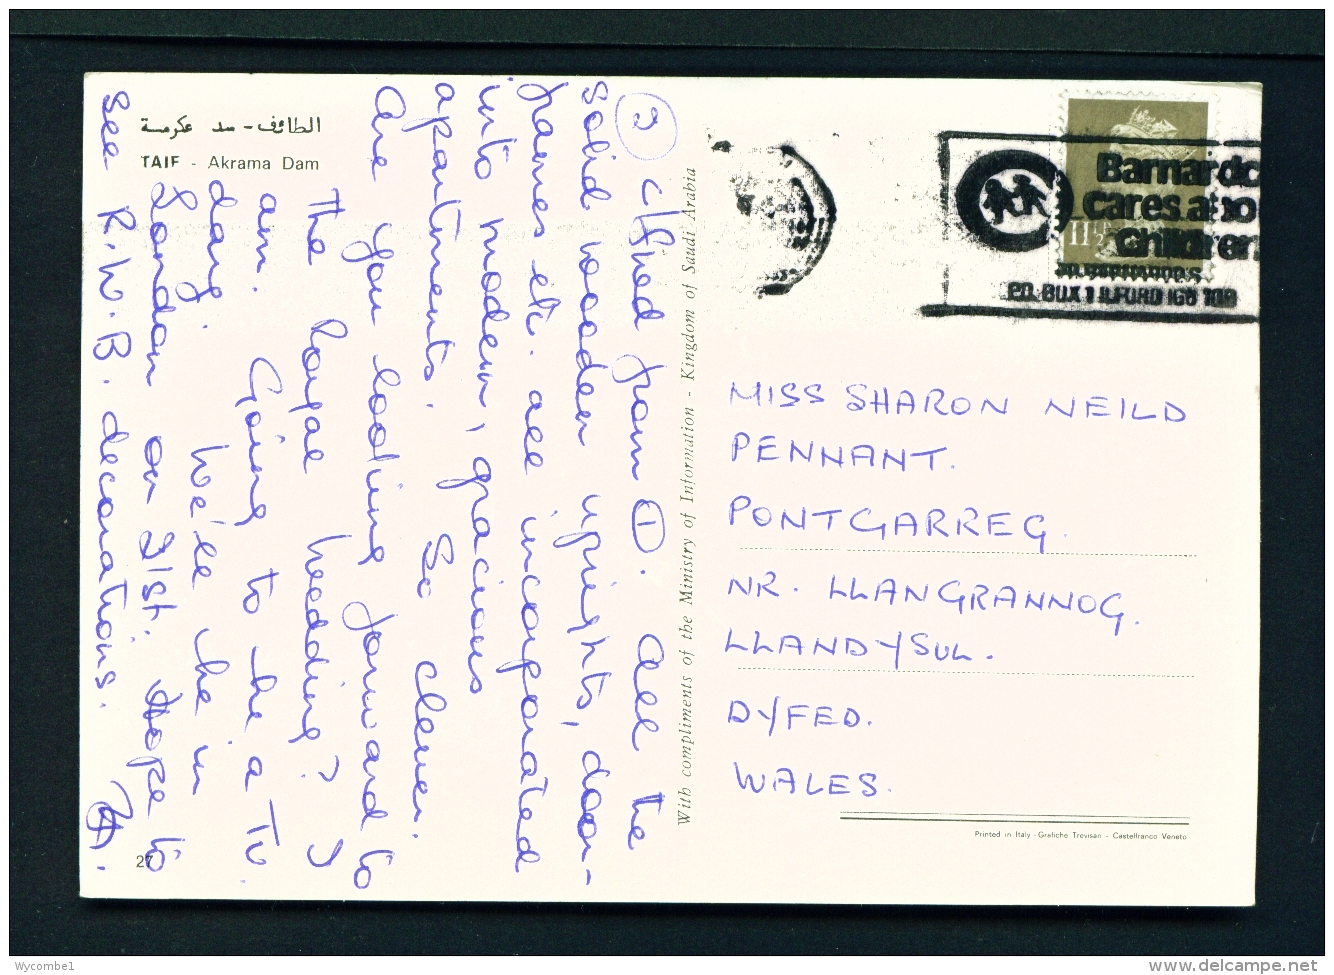 الطائف - سد عكرمة
TAIF - Akrama Dam
② cĥued from ①. All the
solid wooden uprights, door-
frames etc. are incorporated
into modern, gracious
apartments. So clever.
Are you looking forward to
the Royal Wedding? I
am. Going to be a TV
day. We'll be in
London on 31st. Hope to
see R.W.B. decorations.
With compliments of the Ministry of Information - Kingdom of Saudi Arabia
Barnardo
Cares abo
Children
P.O. BOX 1 ILFORD IG6 1QQ
11½P
MISS SHARON NEILD
PENNANT.
PONTGARREG.
NR. LLANGRANNOG.
LLANDYSUL.
DYFED.
WALES.
Printed in Italy - Grafiche Trevisan - Castelfranco Veneto
27
Wycombe1
www.delcampe.net